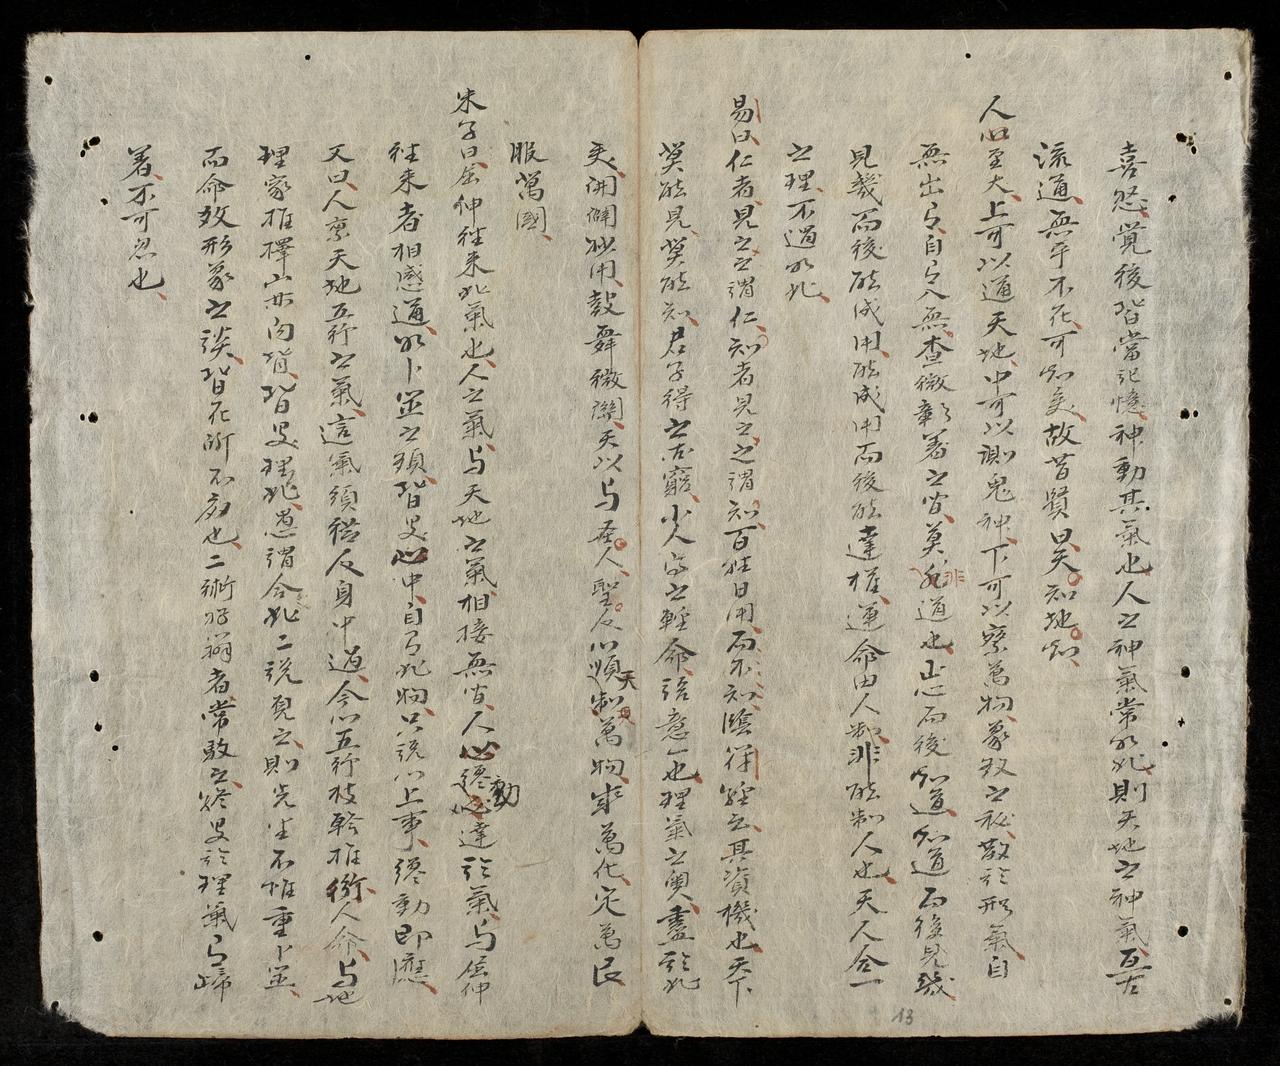 喜怒覚後皆當記憶神動其氣也人之神氣常如此則天地之神氣亘古
流通無乎不在可知矣故昔賢曰天知地知
人心至大上可以通天地中可以測鬼神下可以察萬物象数之秘散於形氣自
無出有自有入無查微彰著之實莫非道也止心而後知道知道而後見幾
見幾而後能成用能成用而後能達権運命由人制非能制人也天人合一
之理不過如此
易曰仁者見之謂仁知者見之謂知百姓日用而不知陰符経云其資機也天下
莫能見莫能知君子得之固窮小人得之軽命語意一也理氣之奥盡於此
矣開闢妙用鼓舞微機天以与聖人聖人心順天制萬物宰萬化定萬民
服萬國
朱子曰屈伸往来此氣也人之氣与天地之氣相接無間人心纔動必達於氣与屈伸
往来者相感通如卜筮之類皆是心中自有此物只説心上事纔動即應
又曰人禀天地五行之氣這氣須従人身中過今以五行枝幹推衍人命与地
理家推擇山形向背皆是理也愚謂合此二説見之則先生不惟重卜筮
而命数形象之談皆在所不廃也二術好辯者常駁之終是於理氣有帰
著不可忽也
13